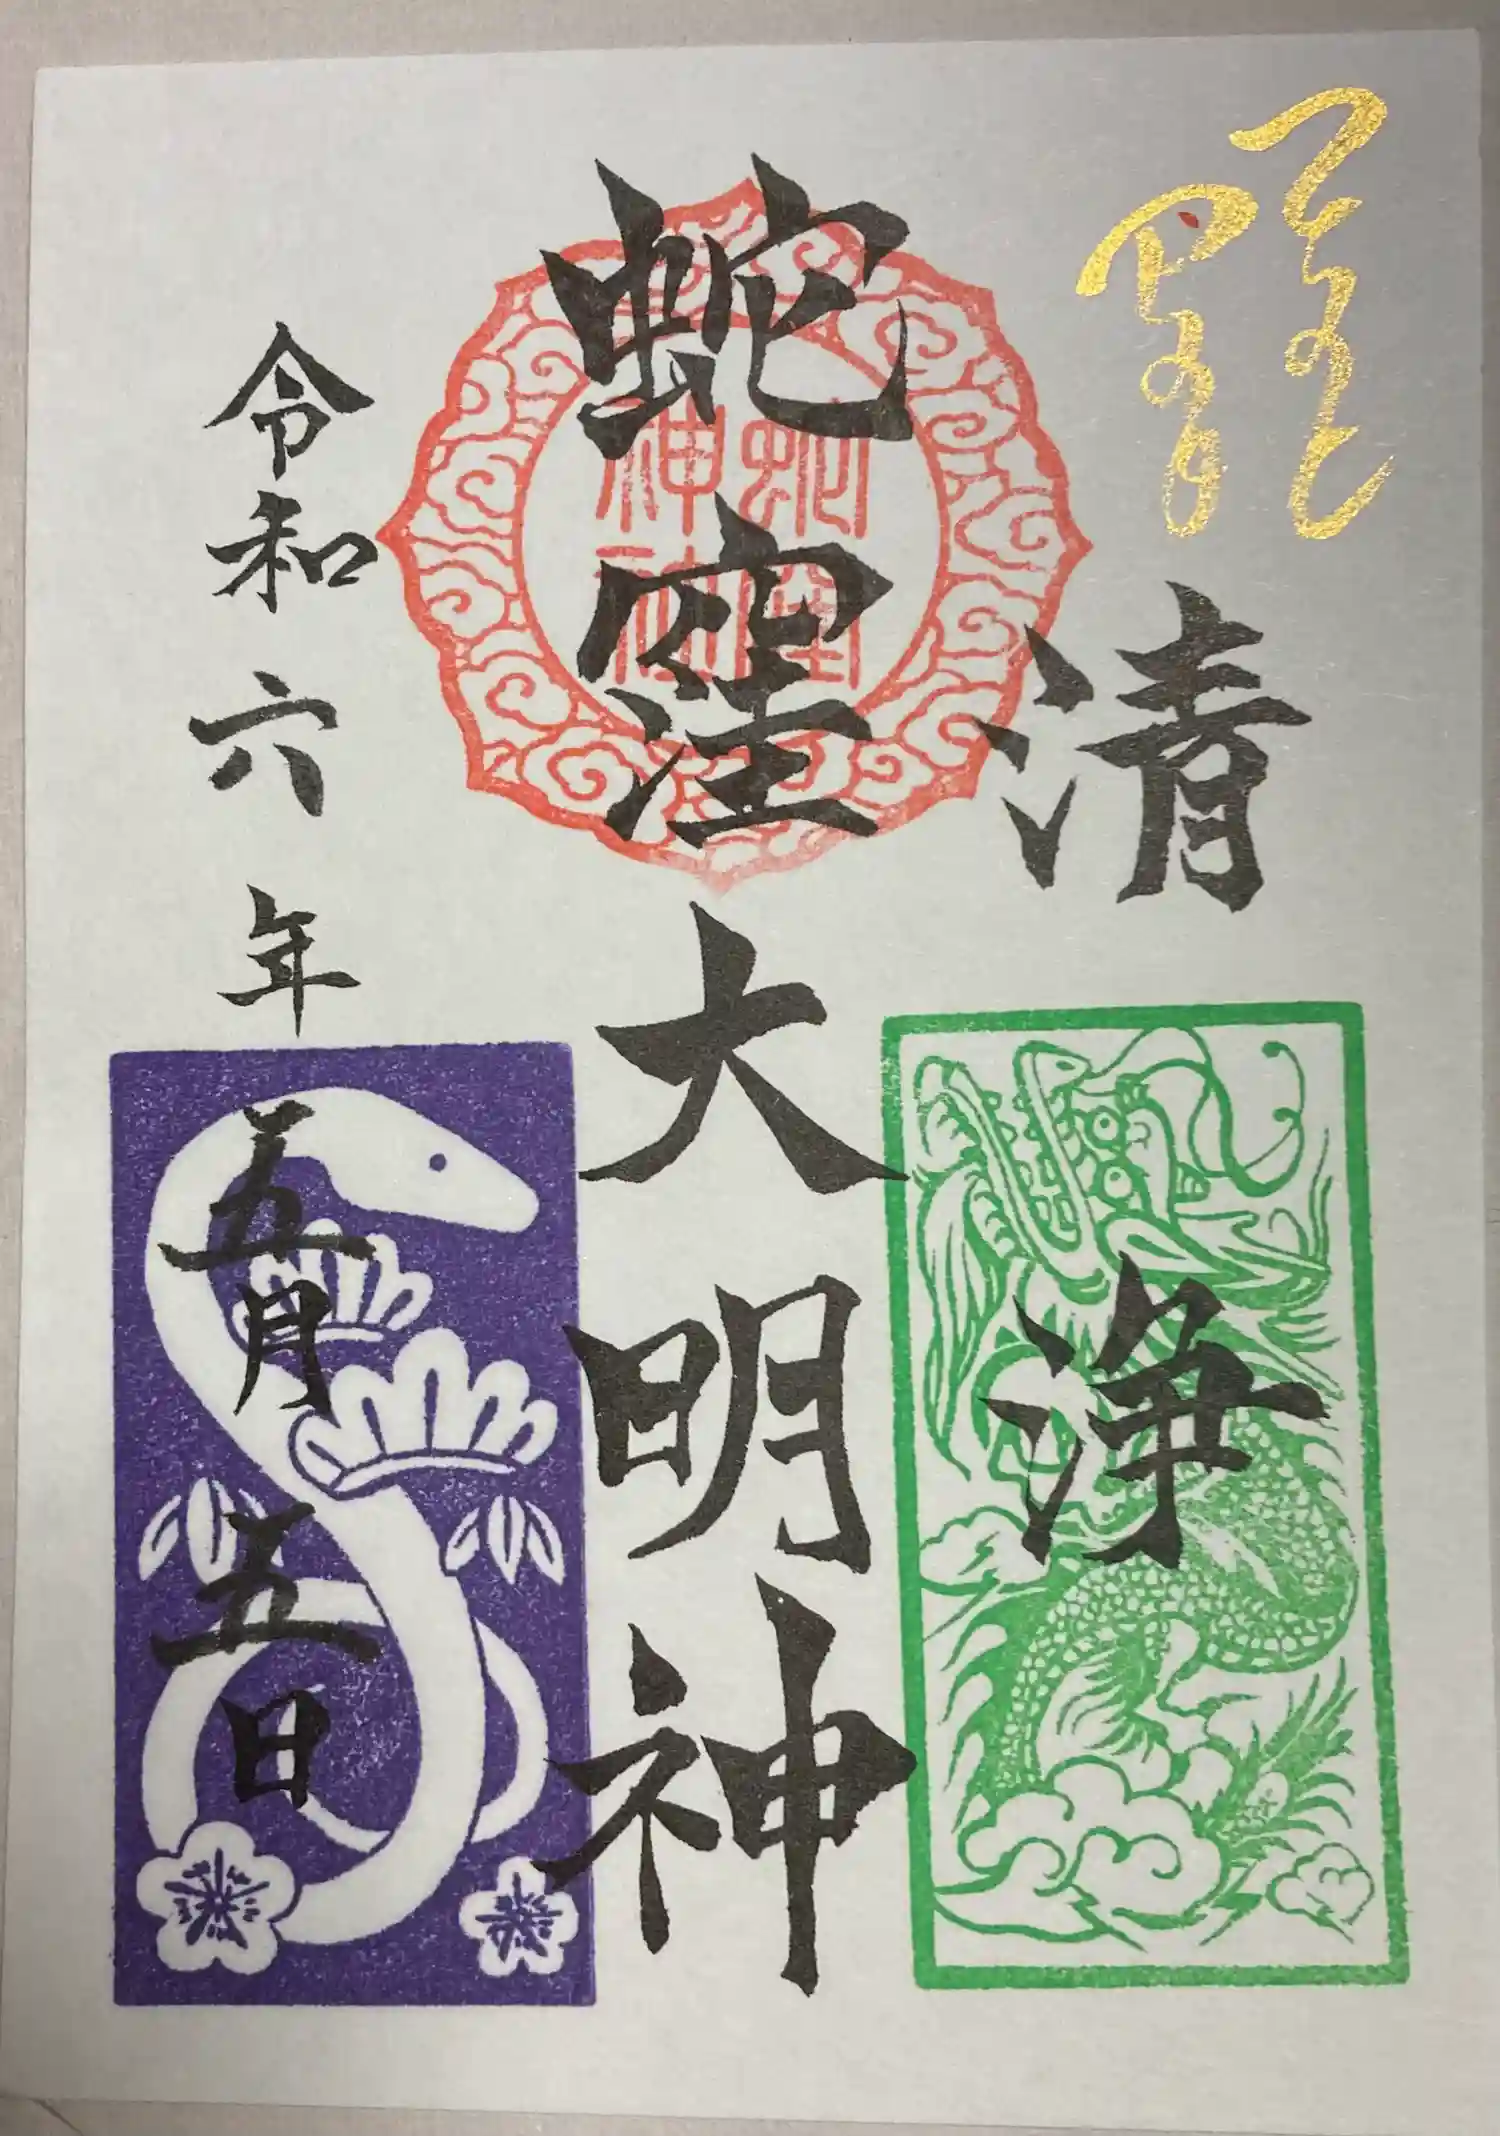 清浄
蛇窪大明神
蛇窪
神社
令和六年五月五日